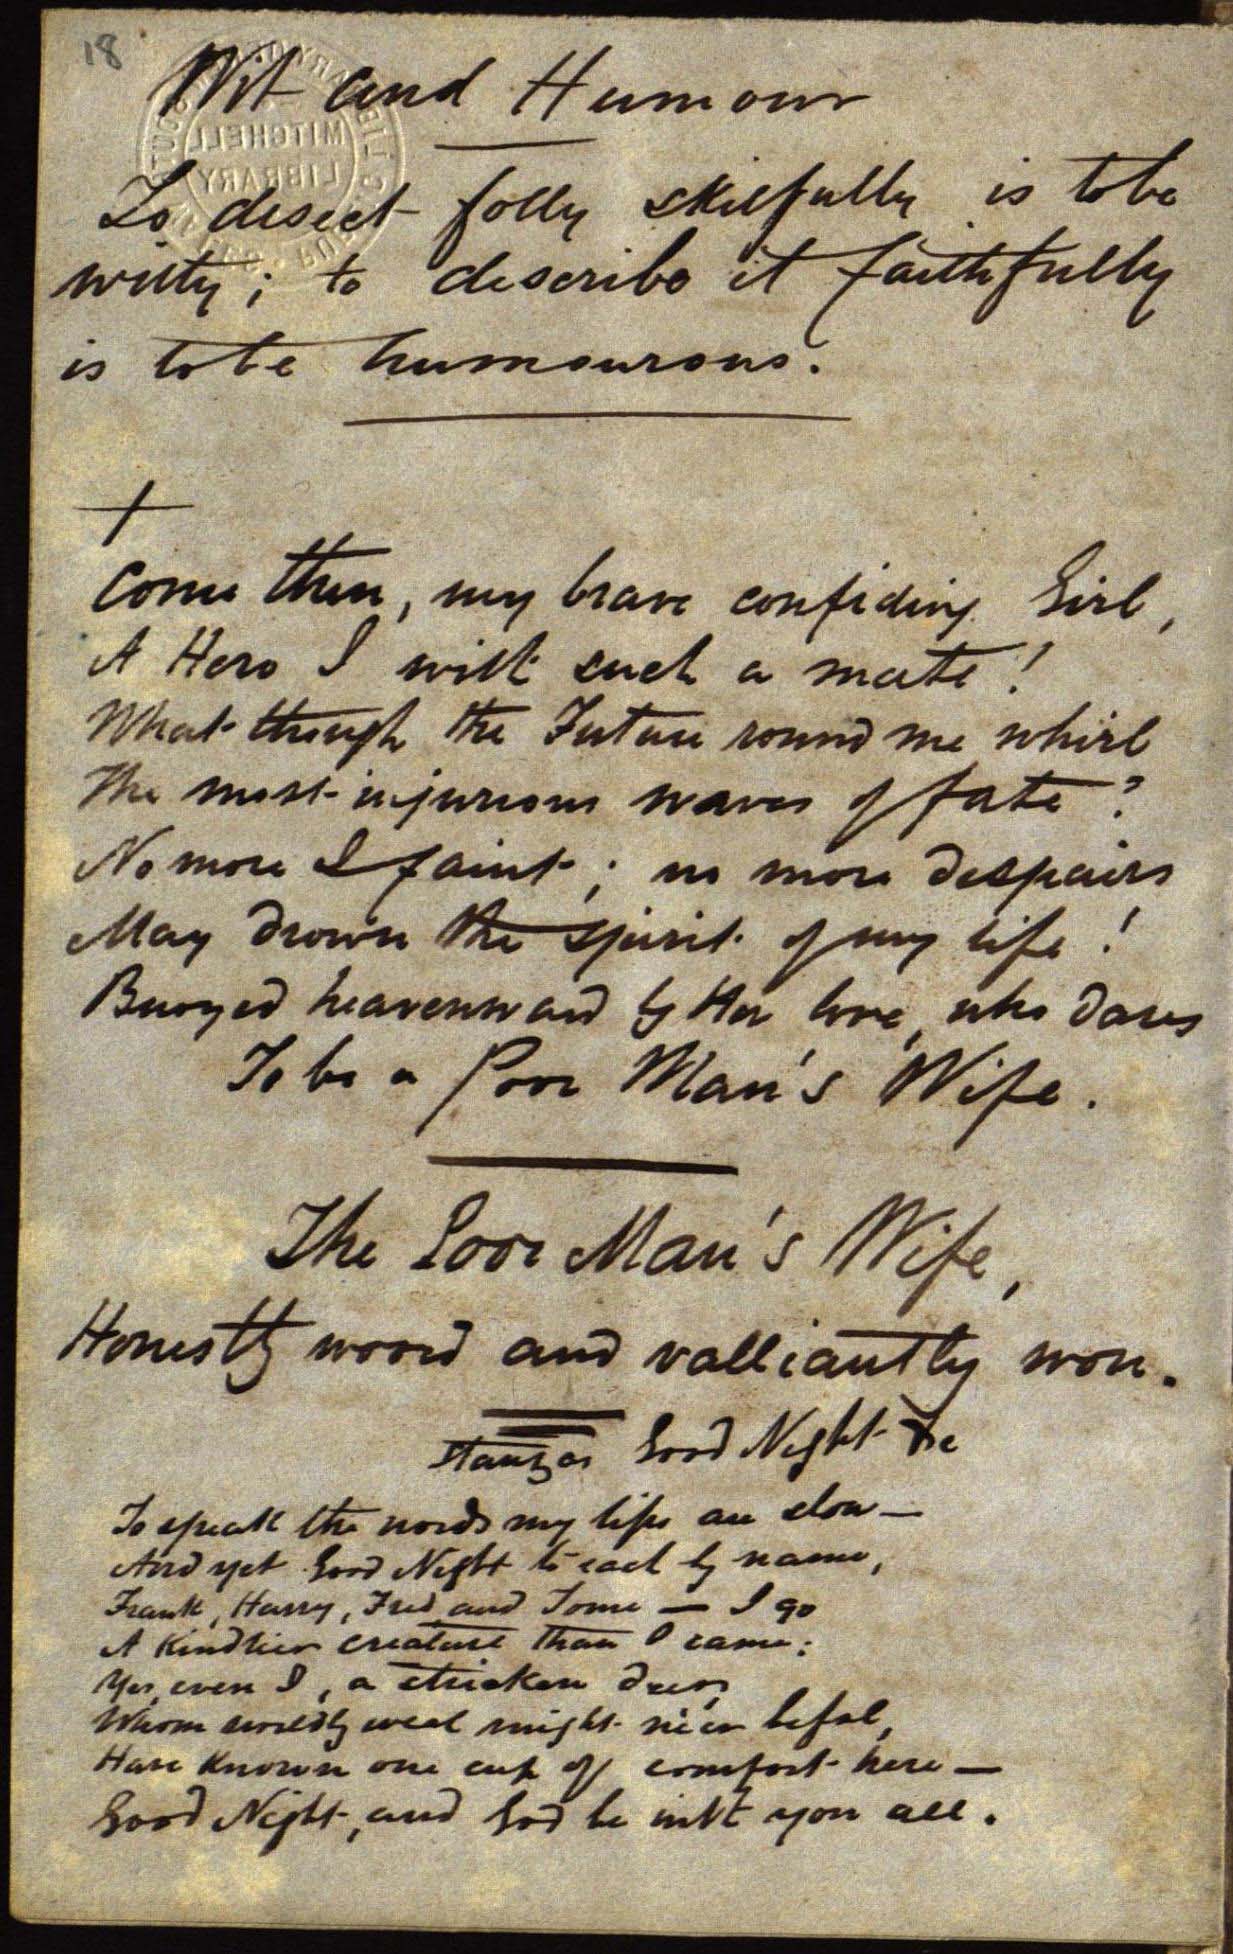 18
Wit and Humour
To disect folly skilfully is to be
witty; to describe it faithfully
is to be humourous.
+
Come then, my brave confiding Girl,
A Hero I with such a mate!
What though the Future round me whirl
The most injurious waves of fate?
No more I faint; no more despairs
May drown the spirit of my life!
Buoyed heavenward by Her love, who dares
To be a Poor Man's Wife.
The Poor Man's Wife,
Honestly wooed and valliantly won.
Stanzas Good Night &c
To speak the words my lips are slow —
And yet Good Night to each by name,
Frank, Harry, Fred and Tome — I go
A Kindlier creature than I came:
Yes, even I, a stricken deer,
Whom worldly weal might ne'er befal,
Have Known one cup of comfort here —
Good Night, and God be with you all.
MITCHELL
LIBRARY